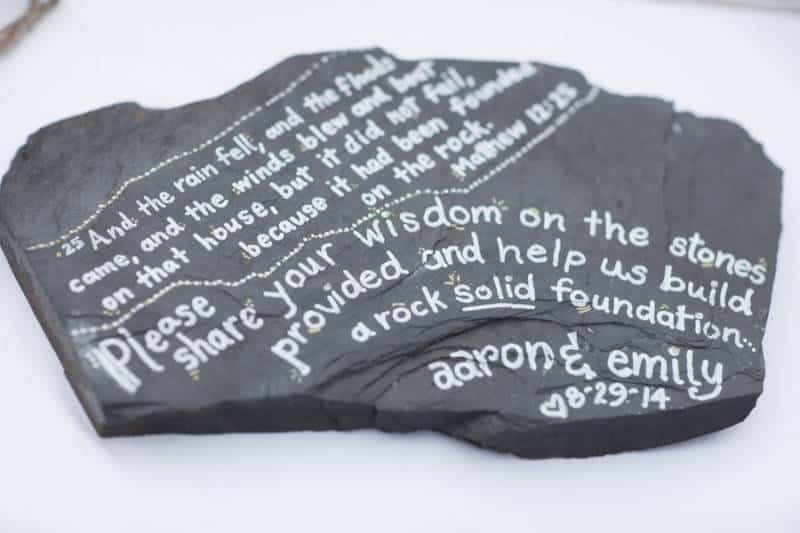 25 And the rain fell, and the floods
came, and the winds blew and beat
on that house, but it did not fall,
because it had been founded
on the rock.
Matthew 12:25
Please
share your wisdom on the stones
provided and help us build
a rock solid foundation...
aaron & emily
♡8-29-14